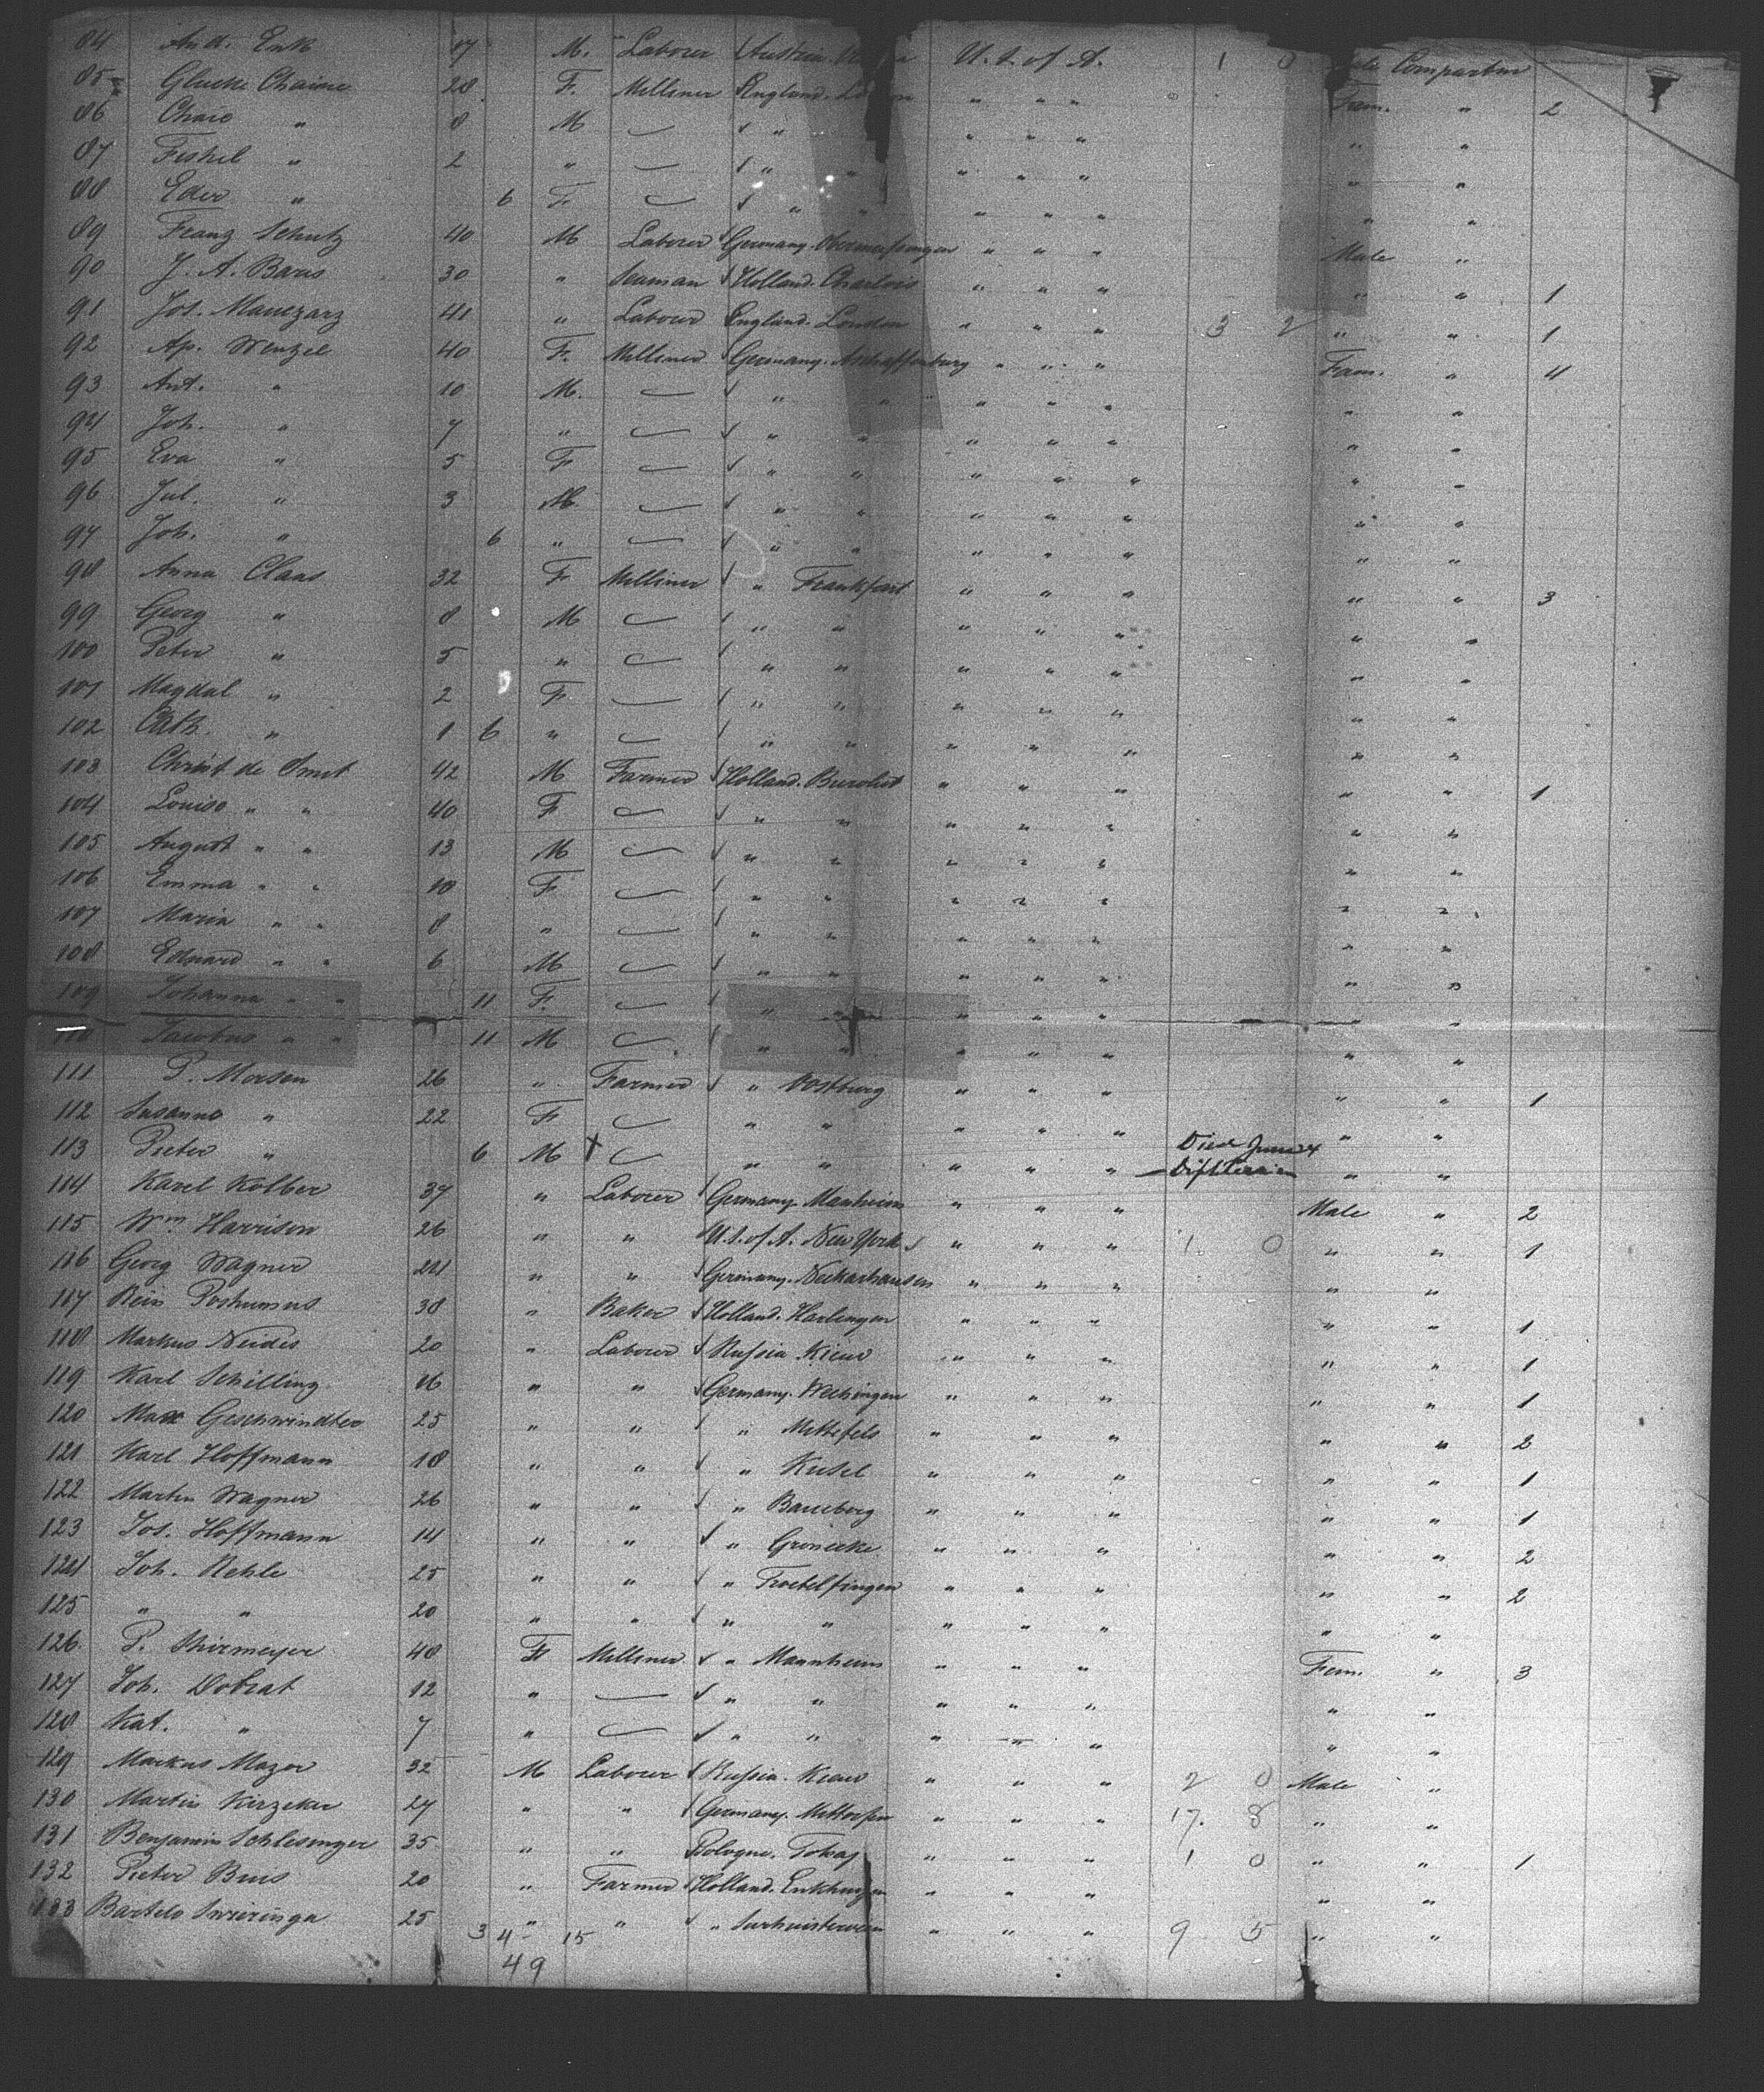 84 And. Enk 17 M. Laborer Austria. U. S. of A. 1 0 Compartm
85 Glucke Chaime 28 F. Milliner England. London " " " Fam. " 2
86 Chaie " 8 M " " " " " " "
87 Fishel " 2 " " " " " " " "
88 Eder " 6 F " " " " " " "
89 Franz Schutz 40 M Laborer Germany. " " " Male "
90 J. A. Barus 30 " Seaman Holland. Charlois " " " " " 1
91 Jos. 41 " Laborer England. London " " " 3 2 " " 1
92 Ap. Wenzel 40 F. Milliner Germany. Aschaffenburg " " " Fam. " 4
93 Ant. " 10 M. " " " " " " "
94 Joh. " 7 " " " " " " " "
95 Eva " 5 F " " " " " " "
96 Jul. " 3 M. " " " " " " "
97 Joh. " 6 " " " " " " " "
98 Anna Claas 32 F Milliner " Frankfurt " " " " " 3
99 Georg " 8 M " " " " " " "
100 Peter " 5 " " " " " " " "
101 Magdal " 2 F. " " " " " " "
102 Cath. " 1 6 " " " " " " " "
103 Christ de Smit 42 M Farmer Holland. " " " " " 1
104 Louise " " 40 F " " " " " " "
105 August " " 13 M " " " " " " "
106 Emma " " 10 F " " " " " " "
107 Maria " " 8 " " " " " " " "
108 Eduard " " 6 M " " " " " " "
109 Johanna " " 11 F. " " " " " " "
110 Jacobus " " 11 M " " " " " " "
111 P. Morsen 26 " Farmer " Oostburg " " " " " 1
112 Susanne " 22 F " " " " " " "
113 Pieter " 6 M X " " " " " Died June 4 Diphteria " "
114 Karel Kolber 37 " Laborer Germany. Manheim " " " Male " 2
115 Wm Harrison 26 " " U. S. of A. New York " " " 1. 0 " " 1
116 Georg Wagner 24 " " Germany. Neckarhausen " " " " "
117 Rein Poshumus 38 " Baker Holland. Harlingen " " " " " 1
118 Markus Neides 20 " Laborer Russia Kiew " " " " " 1
119 Karl Schilling 16 " " Germany. Wechingen " " " " " 1
120 Max Geschwindter 25 " " " Mittefels " " " " " 2
121 Karl Hoffmann 18 " " " Kusel " " " " " 1
122 Martin Wagner 26 " " " " " " " " 1
123 Jos. Hoffmann 14 " " " " " " " " 2
124 Joh. Rehle 25 " " " Troebelfingen " " " " " 2
125 " " 20 " " " " " " " " "
126 P. Stirmeyer 48 F Milliner " Mannheim " " " Fem. " 3
127 Joh. Dobrat 12 " " " " " " " "
128 Kat. " 7 " " " " " " " "
129 Markus Mazor 32 M Laborer Russia. Kiew " " " 2 0 Male "
130 Martin Kirzeker 27 " " Germany. " " " 17. 8 " "
131 Benjamin Schlesinger 35 " " Pologne. Tokay " " " 1 0 " " 1
132 Pieter Buis 20 " Farmer Holland. Enkhuyzen " " " " "
133 Bartele Swieringa 25 " " " Surhuisterveen " " " 9 5 " "
34 - 15
49